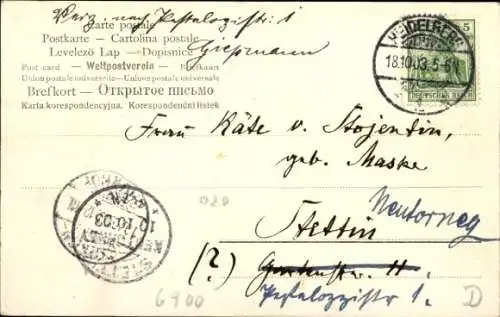 Verz. nach Pestalozzistr: 1
Giessmann
Carte postale
Postkarte – Cartolina postale
Levelező Lap – Dopisnice
Post card – Weltpostverein – Brietkaart
Union postale universelle – Unione postale universale
Brefkort – Открытое письмо
Karta korespondencyjna. Korespondenční lístek
HEIDELBERG
18.10.03. 5-6
5
DEUTSCHES REICH
Frau Käte v. Stojentin,
geb. Maske
Stettin
Neutorney
(?) Gartenstr. 11.
Pestalozzistr 1.
STETTIN
10.03
020
6900
D